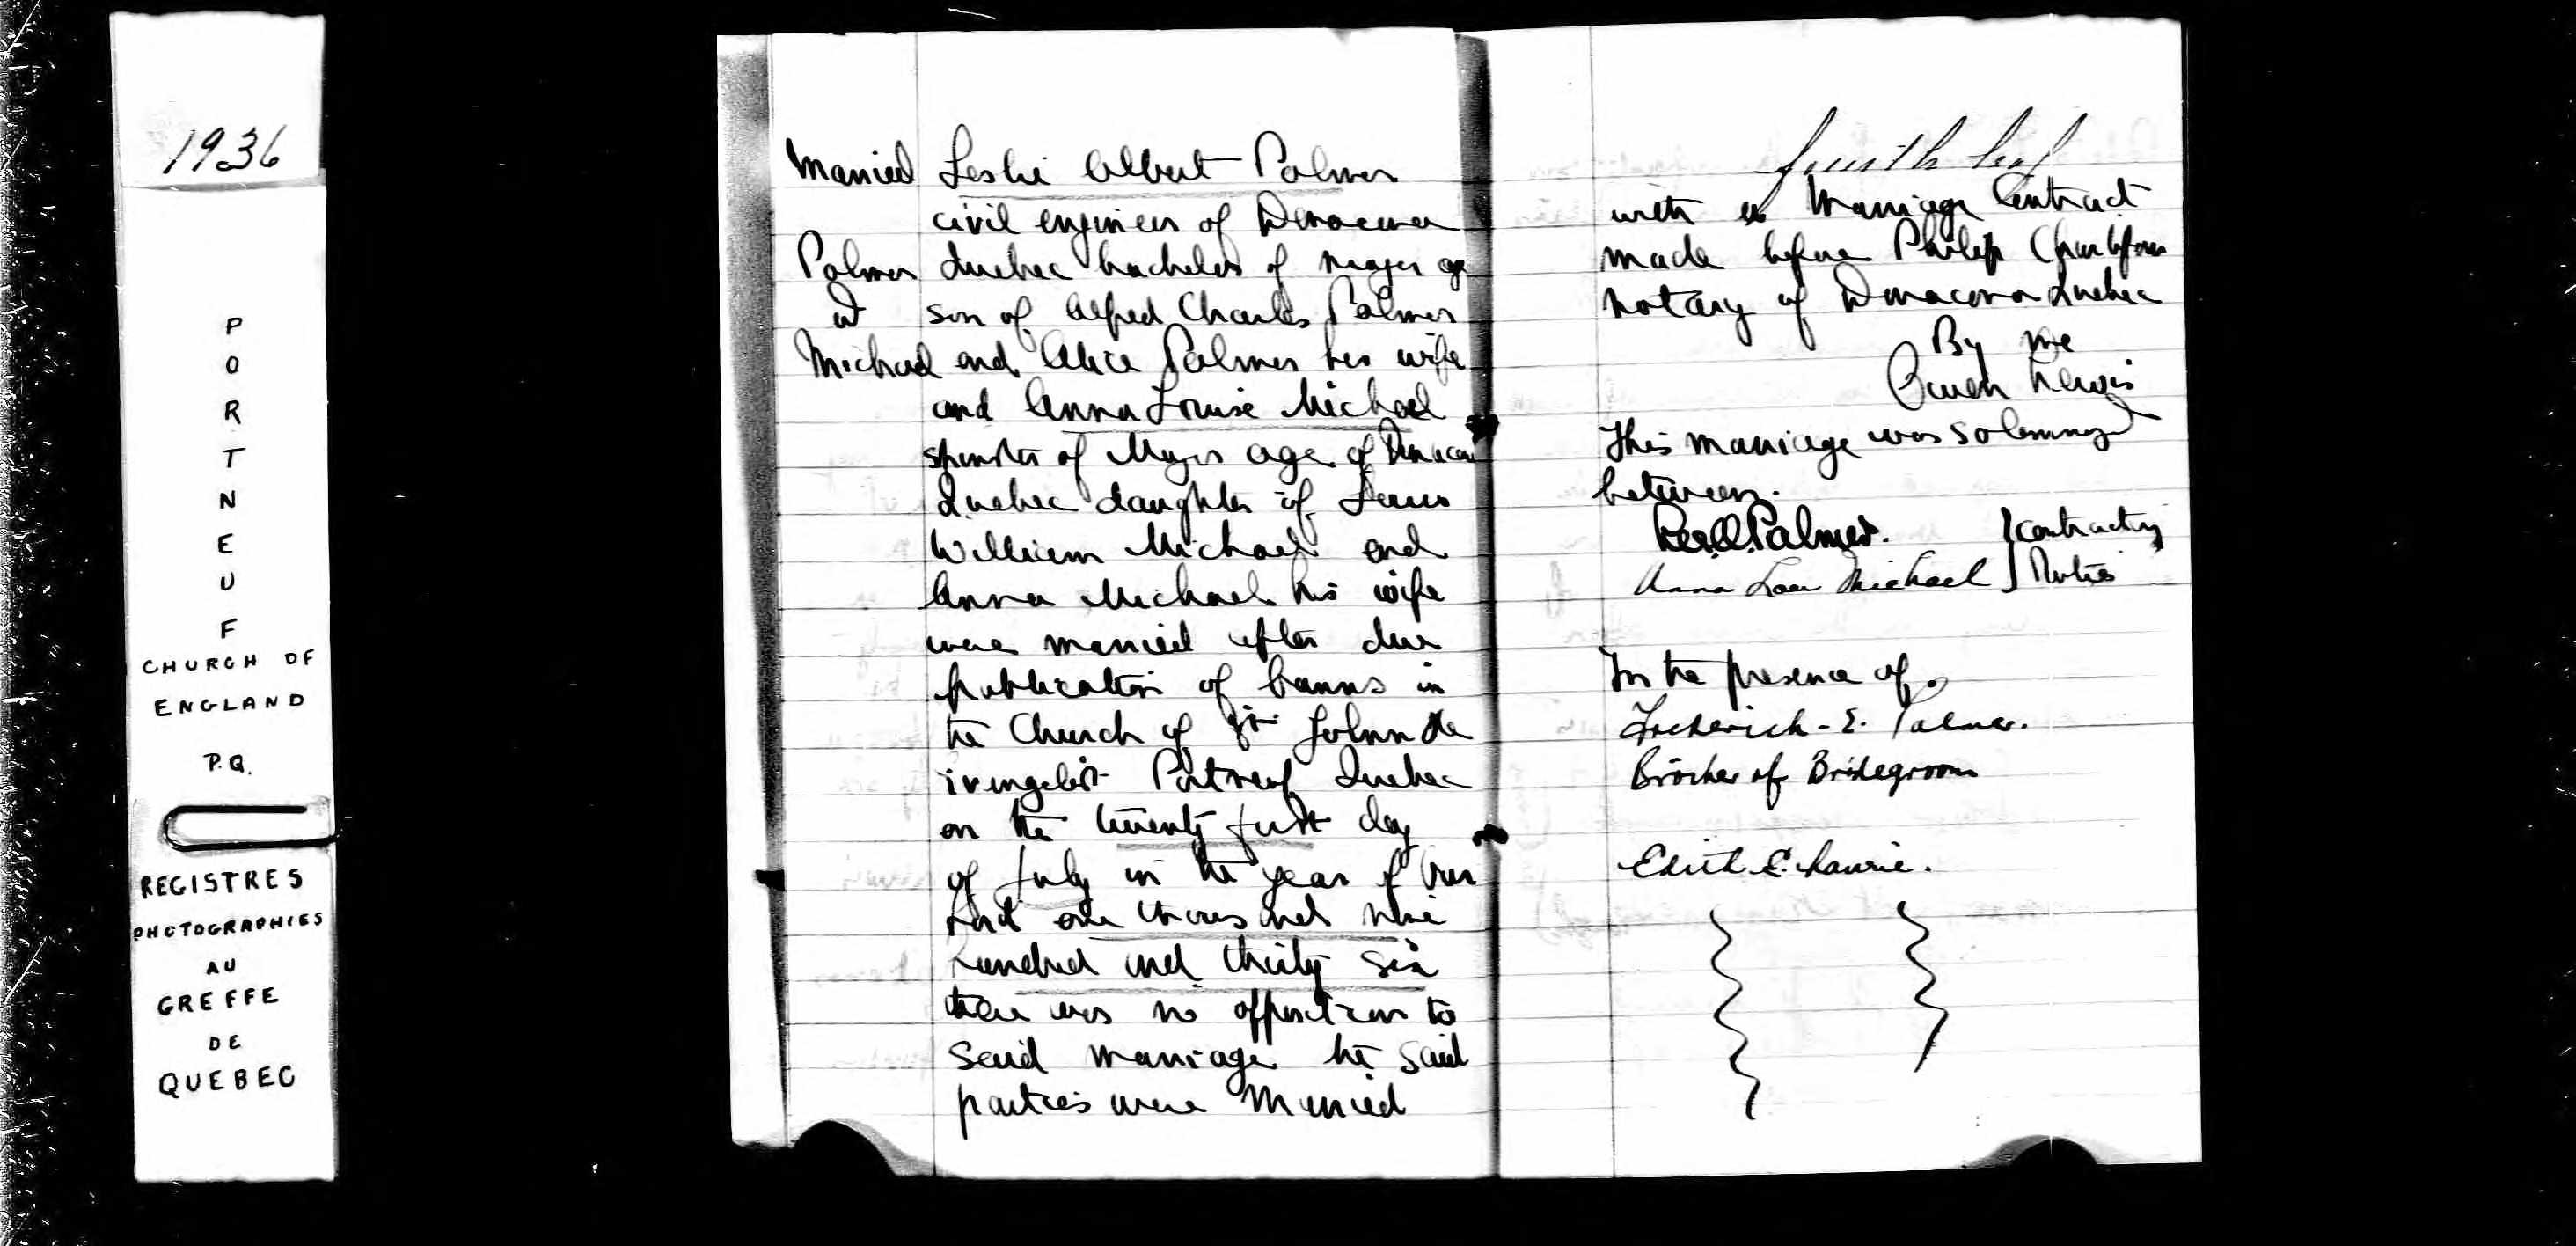 1936
P
O
R
T
N
E
U
F
CHURCH OF
ENGLAND
P.Q.
REGISTRES
PHOTOGRAPHIES
AU
GREFFE
DE
QUEBEC
Married
Palmer
&
Michael
Leslie Albert Palmer
civil engineer of Donnacona
Quebec bachelor of major age
son of Alfred Charles Palmer
and Alice Palmer his wife
and Anna Louise Michael
spinster of Major age of Donnacona
Quebec daughter of
William Michael and
Anna Michael his wife
were married after due
publication of banns in
the Church of St John the
evangelist Portneuf Quebec
on the twenty first day
of July in the year of Our
Lord one thousand nine
hundred and thirty six
there was no opposition to
said marriage the said
parties were Married
fourth leaf
with a Marriage Contract
made before Philip
notary of Donnacona Quebec
By me
Owen Lewis
This marriage was solemnized
between.
Les. A. Palmer. } contracting
Anna Lou Michael } Parties
In the presence of.
Frederick - E. Palmer.
Brother of Bridegroom
Edith E. Lawrie.